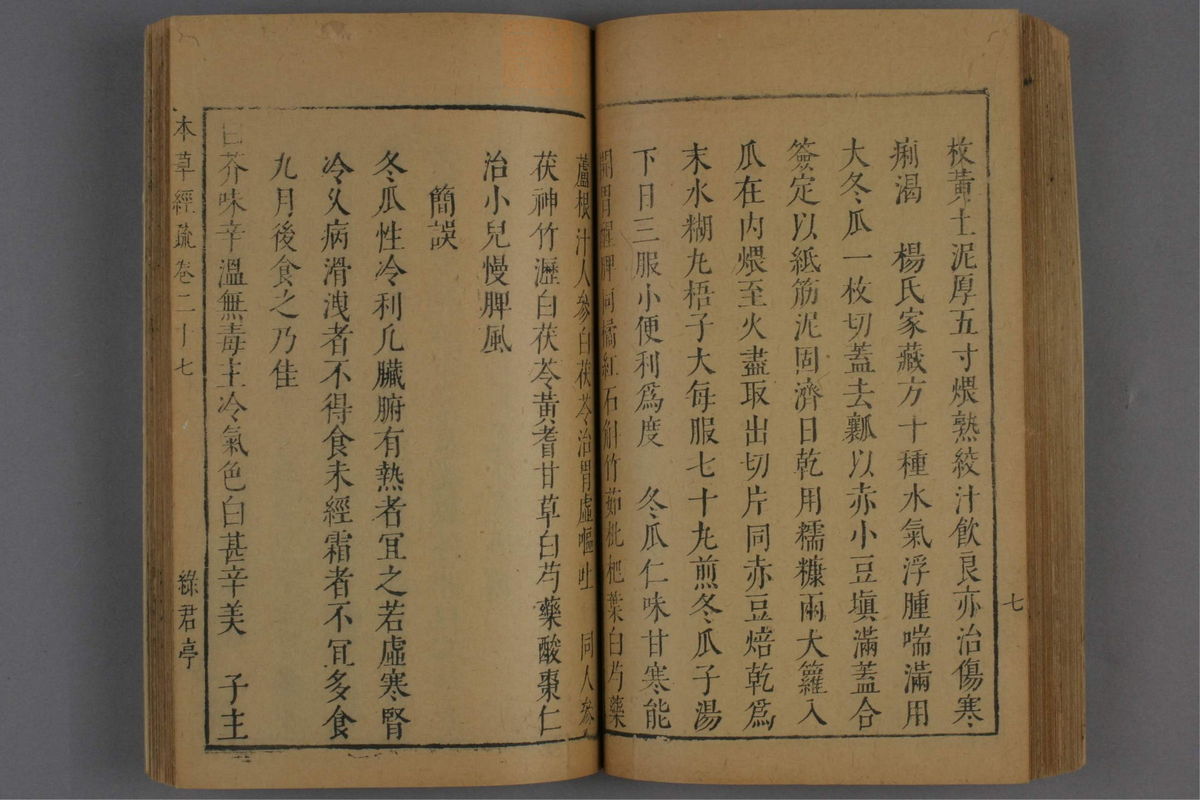 七
枚黃土泥厚五寸煨熟絞汁飮良亦治傷寒
痢渴　楊氏家藏方十種水氣浮腫喘滿用
大冬瓜一枚切蓋去瓤以赤小豆塡滿蓋合
簽定以紙筋泥固濟日乾用糯糠兩大籮入
瓜在內煨至火盡取出切片同赤豆焙乾爲
末水糊丸梧子大每服七十丸煎冬瓜子湯
下日三服小便利爲度　冬瓜仁味甘寒能
開胃醒脾同橘紅石斛竹茹枇杷葉白芍藥
蘆根汁人參白茯苓治胃虛嘔吐　同人參
茯神竹瀝白茯苓黃耆甘草白芍藥酸棗仁
治小兒慢脾風
簡誤
冬瓜性冷利凡臟腑有熱者宜之若虛寒腎
冷久病滑洩者不得食未經霜者不宜多食
九月後食之乃佳
白芥味辛溫無毒主冷氣色白甚辛美　子主
本草經疏卷二十七
綠君亭